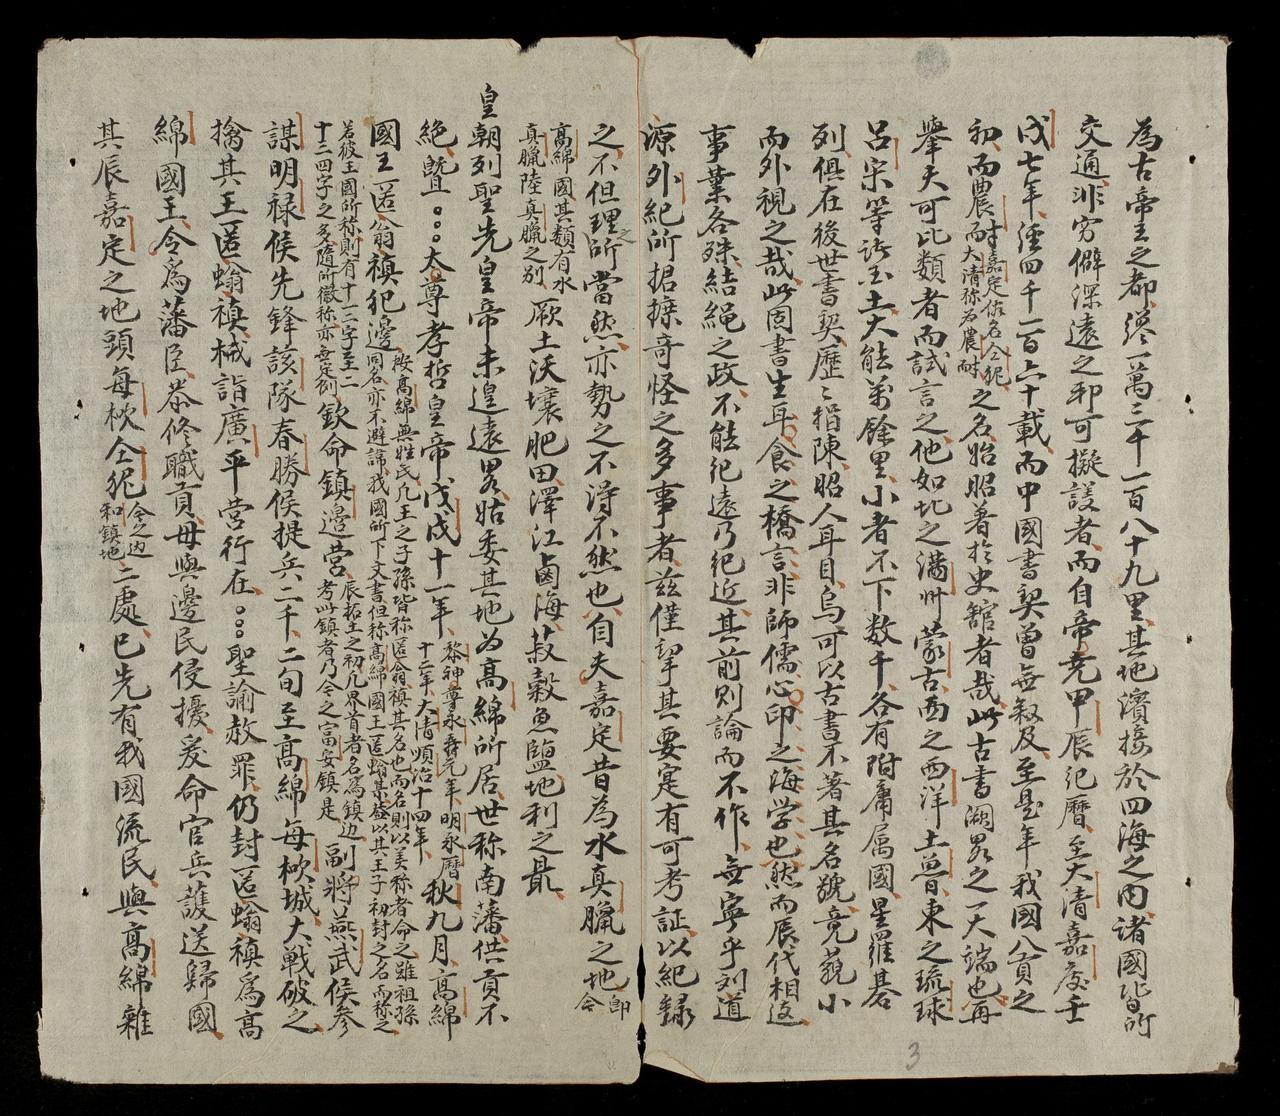 為古帝王之都繆一萬三千一百八十九里其地濱接於四海之內諸國皆所
交通非窮僻深遠之邦可擬議者而自帝堯甲辰紀曆至大清嘉慶壬
戌七年徑四千一百六十載而中國書契曾無敘及至是年我國入貢之
初而農耐嘉定俗名仝狔而大清称為農耐之名始昭著於史舘者哉此古書濶畧之一大端也再
舉夫可比類者而試言之他如北之滿州蒙古西之西洋土魯東之琉球
呂宋等諸玉土大能萬餘里小者不下数千各有附庸属國星羅碁
列俱在後世書契歷〻指陳昭人耳目烏可以古書不著其名號竟藐小
而外視之哉此固書生耳食之橋言非師儒心印之海学也然而辰代相逺
事業各殊結繩之政不能紀遠乃紀近其前則論而不作無寧乎列道
源外紀所据摭竒怪之多事者茲僅挈其要寔有可考証以紀録
之不但理之所當然亦勢之不得不然也自夫嘉定昔為水真臘之地即今
高綿國其類有水真臘陸真臘之別厥土沃壤肥田澤江鹵海菽穀魚鹽地利之最
皇朝列聖先皇帝未遑遠畧姑委其地为高綿所居世称南藩供貢不
絶曁太尊孝哲皇帝戊戌十一年黎神尊永壽元年明永曆十二年大清順治十四年秋九月高綿
國王匿翁禛犯邊按高綿無姓氏凡王之子孫皆称匿翁禛其名也而名則以美称者今之雖祖孫同名亦不避諱我國所下文書但称高綿國王匿螉某盛以其王子初封之名而称之
若彼王國所称則有十一二字至二十三四字之多隨所徽称亦無定例欽命鎮邊營辰拓土之初凡界首者名為鎮边考此鎮者乃今之富安鎮是副將燕武侯參
謀明禄侯先鋒該隊春勝侯提兵二千二旬至高綿每楸城大戦破之
擒其王匿螉禛械詣廣平營行在聖諭赦罪仍封匿螉禛為高
綿國王令為藩臣恭修職貢毋與邊民侵擾爰命官兵護送歸國
其辰嘉定之地頭每楸仝狔今之边和鎮地二處已先有我國流民與高綿雜
3